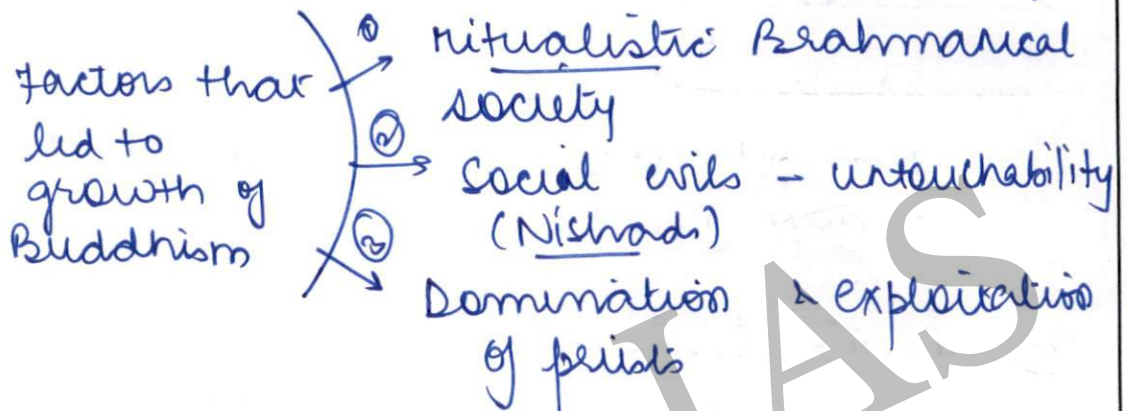 Factors that
led to
growth of
Buddhism
① ritualistic Brahmanical
society
② Social evils - untouchability
(Nishads)
③ Domination & exploitation
of priests
IAS